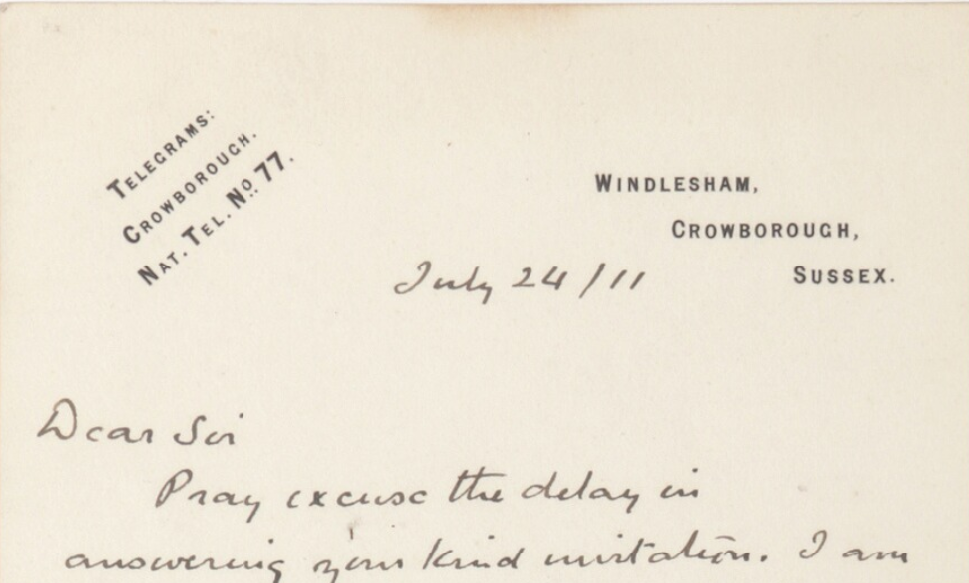 TELEGRAMS:
CROWBOROUGH.
NAT. TEL. No. 77.
WINDLESHAM,
CROWBOROUGH,
SUSSEX.
July 24/11
Dear Sir
Pray excuse the delay in
answering your kind invitation. I am